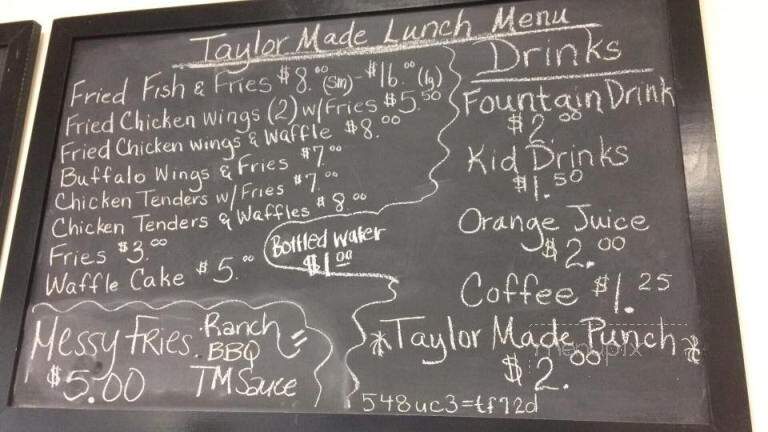 Taylor Made Lunch Menu
Fried Fish & Fries $8.00 (sm) - $16.00 (lg)
Fried Chicken wings (2) w/Fries $5.50
Fried Chicken wings & Waffle $8.00
Buffalo Wings & Fries $7.00
Chicken Tenders w/Fries $7.00
Chicken Tenders & Waffles $8.00
Fries $3.00
Waffle Cake $5.00
Bottled Water
$1.00
Messy Fries
$5.00
Ranch
BBQ
TM Sauce
Drinks
Fountain Drink
$2.00
Kid Drinks
$1.50
Orange Juice
$2.00
Coffee $1.25
*Taylor Made Punch*
$2.00
menupix
548uc3=tf72d